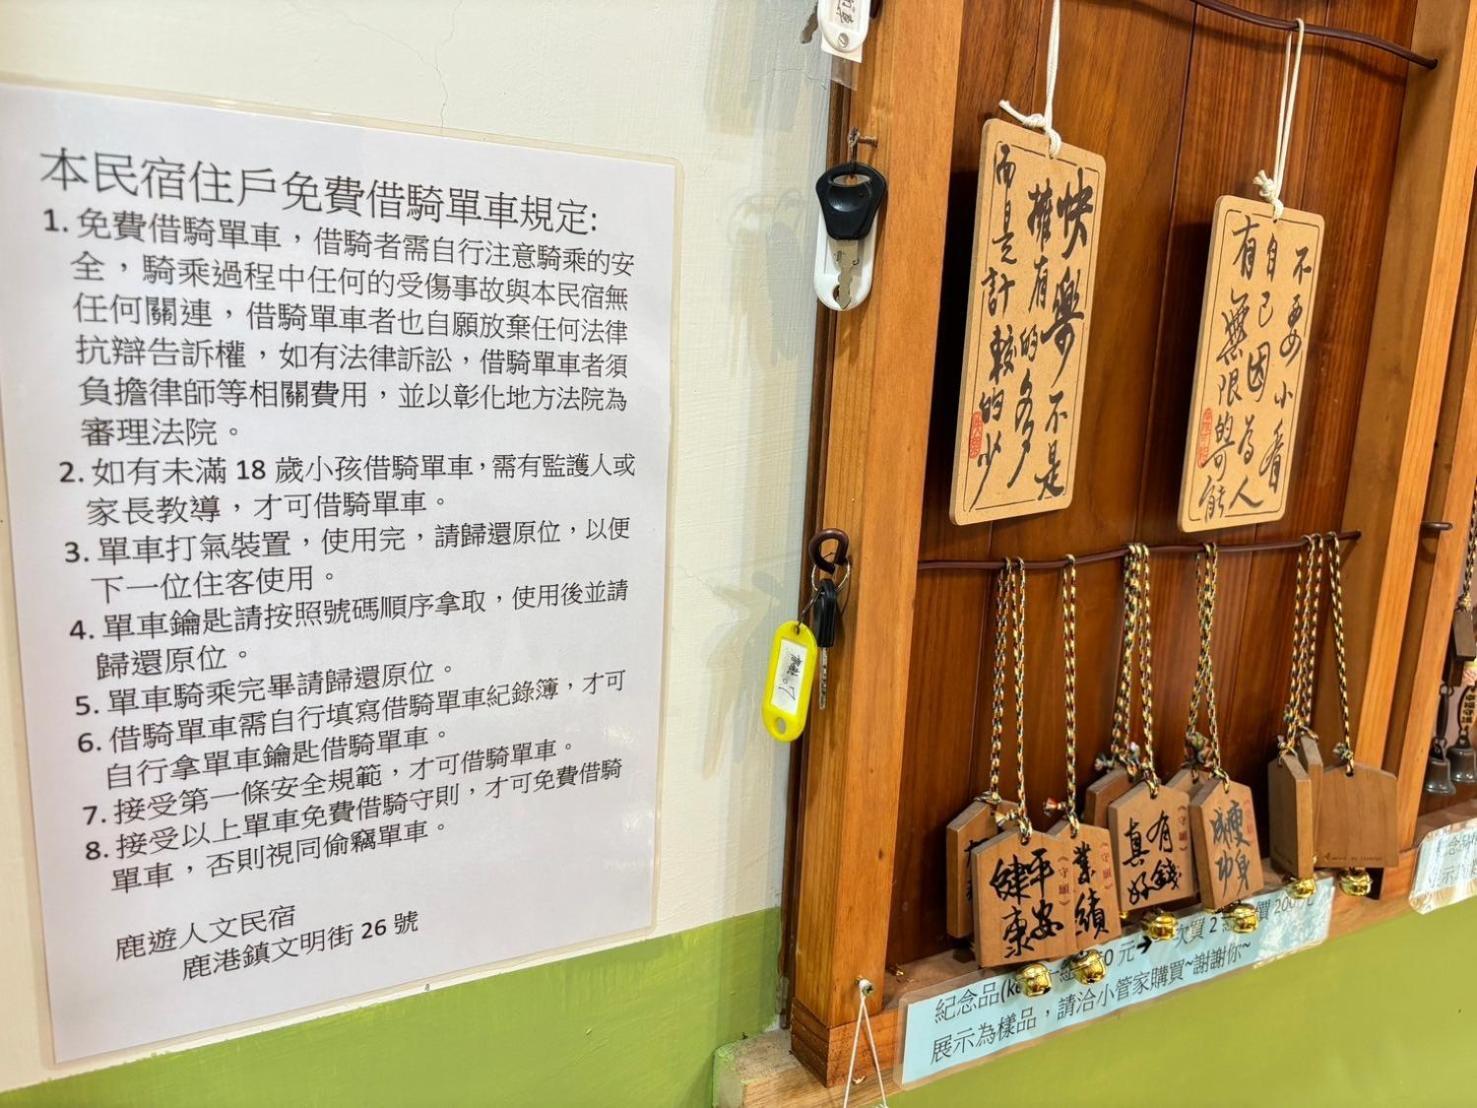 本民宿住戶免費借騎單車規定:
1. 免費借騎單車，借騎者需自行注意騎乘的安
全，騎乘過程中任何的受傷事故與本民宿無
任何關連，借騎單車者也自願放棄任何法律
抗辯告訴權，如有法律訴訟，借騎單車者須
負擔律師等相關費用，並以彰化地方法院為
審理法院。
2. 如有未滿 18 歲小孩借騎單車，需有監護人或
家長教導，才可借騎單車。
3. 單車打氣裝置，使用完，請歸還原位，以便
下一位住客使用。
4. 單車鑰匙請按照號碼順序拿取，使用後並請
歸還原位。
5. 單車騎乘完畢請歸還原位。
6. 借騎單車需自行填寫借騎單車紀錄簿，才可
自行拿單車鑰匙借騎單車。
7. 接受第一條安全規範，才可借騎單車。
8. 接受以上單車免費借騎守則，才可免費借騎
單車，否則視同偷竊單車。
鹿遊人文民宿
鹿港鎮文明街 26 號
快樂不是
擁有的多
而是計較的少
不要小看
自己因為人
有無限的可能
平安
健康
業績
（守願）
有錢
真好
（守願）
瘦身
成功
紀念品
元
次買 2
價 200 元
展示為樣品，請洽小管家購買~謝謝你~